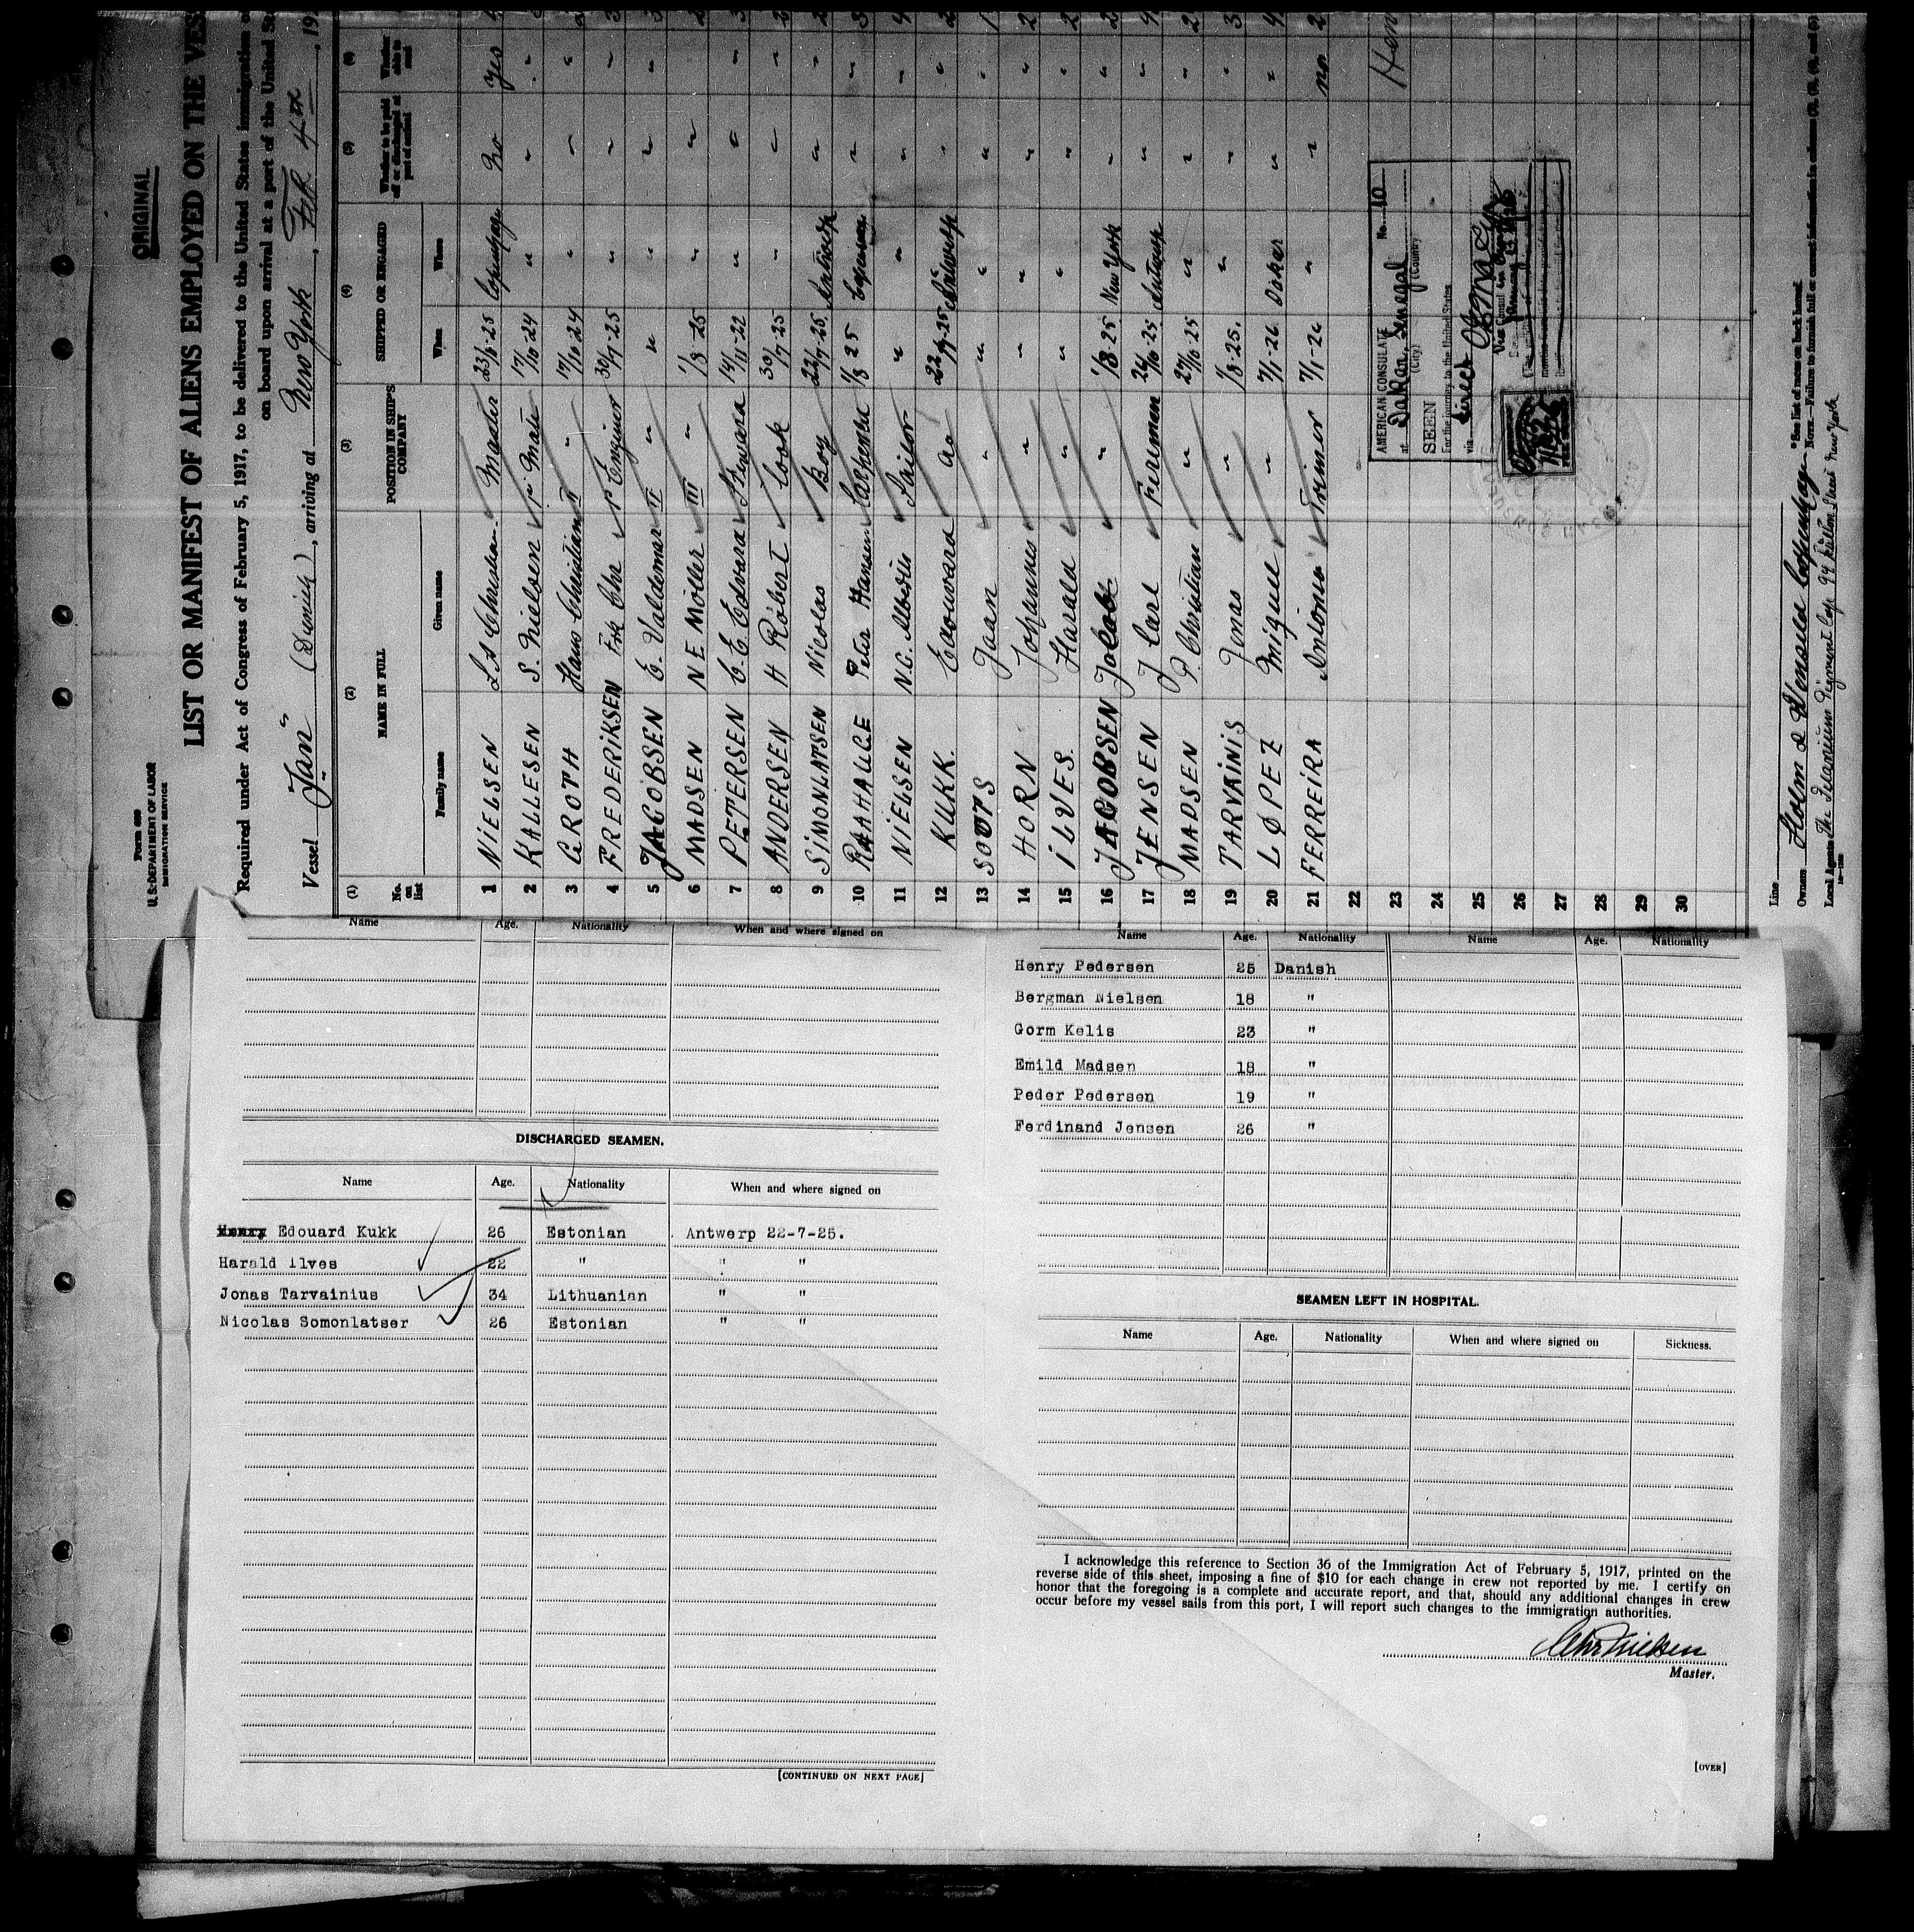 ORIGINAL
FORM 689
U. S. DEPARTMENT OF LABOR
IMMIGRATION SERVICE
LIST OR MANIFEST OF ALIENS EMPLOYED ON THE VES
Required under Act of Congress of February 5, 1917, to be delivered to the United States immigration
on board upon arrival at a port of the United St
Vessel "Jan" (Danish), arriving at New York, Feb 4th, 19
(1) (2) (3) (4) (5) (6)
No. on list NAME IN FULL POSITION IN SHIP'S COMPANY SHIPPED OR ENGAGED Whether to be paid off or discharged at port of arrival Whether able to read
Family name Given name When Where
1 NIELSEN Christian Master 25 Copenhagen No yes
2 KALLESEN S. Nielsen 1' Mate 17/10-24 " " "
3 GROTH Hans Christian II " 17/10-24 " " "
4 FREDERIKSEN Frk Chr 1' Enginer 30/7-25 " " "
5 JACOBSEN E. Valdemar II " " " " "
6 MADSEN N E Möller III " 1/8-25 " " "
7 PETERSEN C. E. Edvard Steward 14/11-22 " " "
8 ANDERSEN H Robert Cook 30/7-25 " " "
9 SIMONLATSEN Nicolas Boy 22/7-25 Antwerp " "
10 RAAHAUGE Peter Hansen 1/8 25 Copenhagen " "
11 NIELSEN N.C. Sailor " " " "
12 KUKK. Edouard do 22/7-25 Antwerp " "
13 SOOTS Jaan " " " " "
14 HORN Johannes " " " " "
15 ILVES. Harald " " " " "
16 JACOBSEN Jolob " 1/8-25 New York " "
17 JENSEN J Carl Fireman 26/10-25 Antwerp " "
18 MADSEN P. Christian " 27/10-25 " " "
19 TARVAINIS Jonas " 1/8-25. " " "
20 LØPEZ Miguel " 7/1-26 Dakar " "
21 FERREIRA Antonio Trimer 7/1-26 " " no
22
23
24
25
26
27
28
29
30
AMERICAN CONSULATE No. 10
at Dakar, Senegal
(City) (Country)
SEEN
For the journey to the United States
via direct
Line
Owners Holm & Wonsild Copenhagen
Local Agents The Titanium Pigment 94 Fulton Street New York
*See list of races on back hereof.
Name Age. Nationality When and where signed on
DISCHARGED SEAMEN.
Name Age. Nationality When and where signed on
Henry Edouard Kukk 26 Estonian Antwerp 22-7-25.
Harald Ilves 22 " " "
Jonas Tarvainius 34 Lithuanian " "
Nicolas Somonlatser 26 Estonian " "
[CONTINUED ON NEXT PAGE]
Name Age. Nationality Name Age. Nationality
Henry Pedersen 25 Danish
Bergman Nielsen 18 "
Gorm Kelis 23 "
Emild Madsen 18 "
Peder Pedersen 19 "
Ferdinand Jensen 26 "
SEAMEN LEFT IN HOSPITAL.
Name Age. Nationality When and where signed on Sickness.
I acknowledge this reference to Section 36 of the Immigration Act of February 5, 1917, printed on the
reverse side of this sheet, imposing a fine of $10 for each change in crew not reported by me. I certify on
honor that the foregoing is a complete and accurate report, and that, should any additional changes in crew
occur before my vessel sails from this port, I will report such changes to the immigration authorities.
Chr Nielsen
Master.
[OVER]